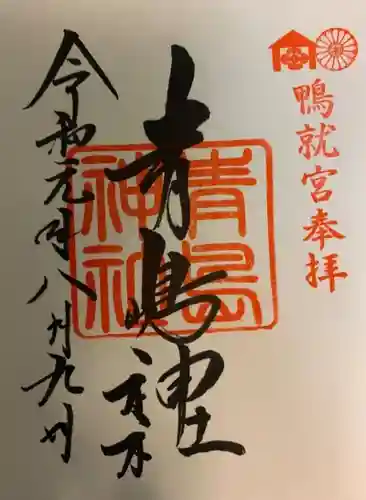 鴨就宮奉拝
青島神社
令和元年八月九日
青島
神社